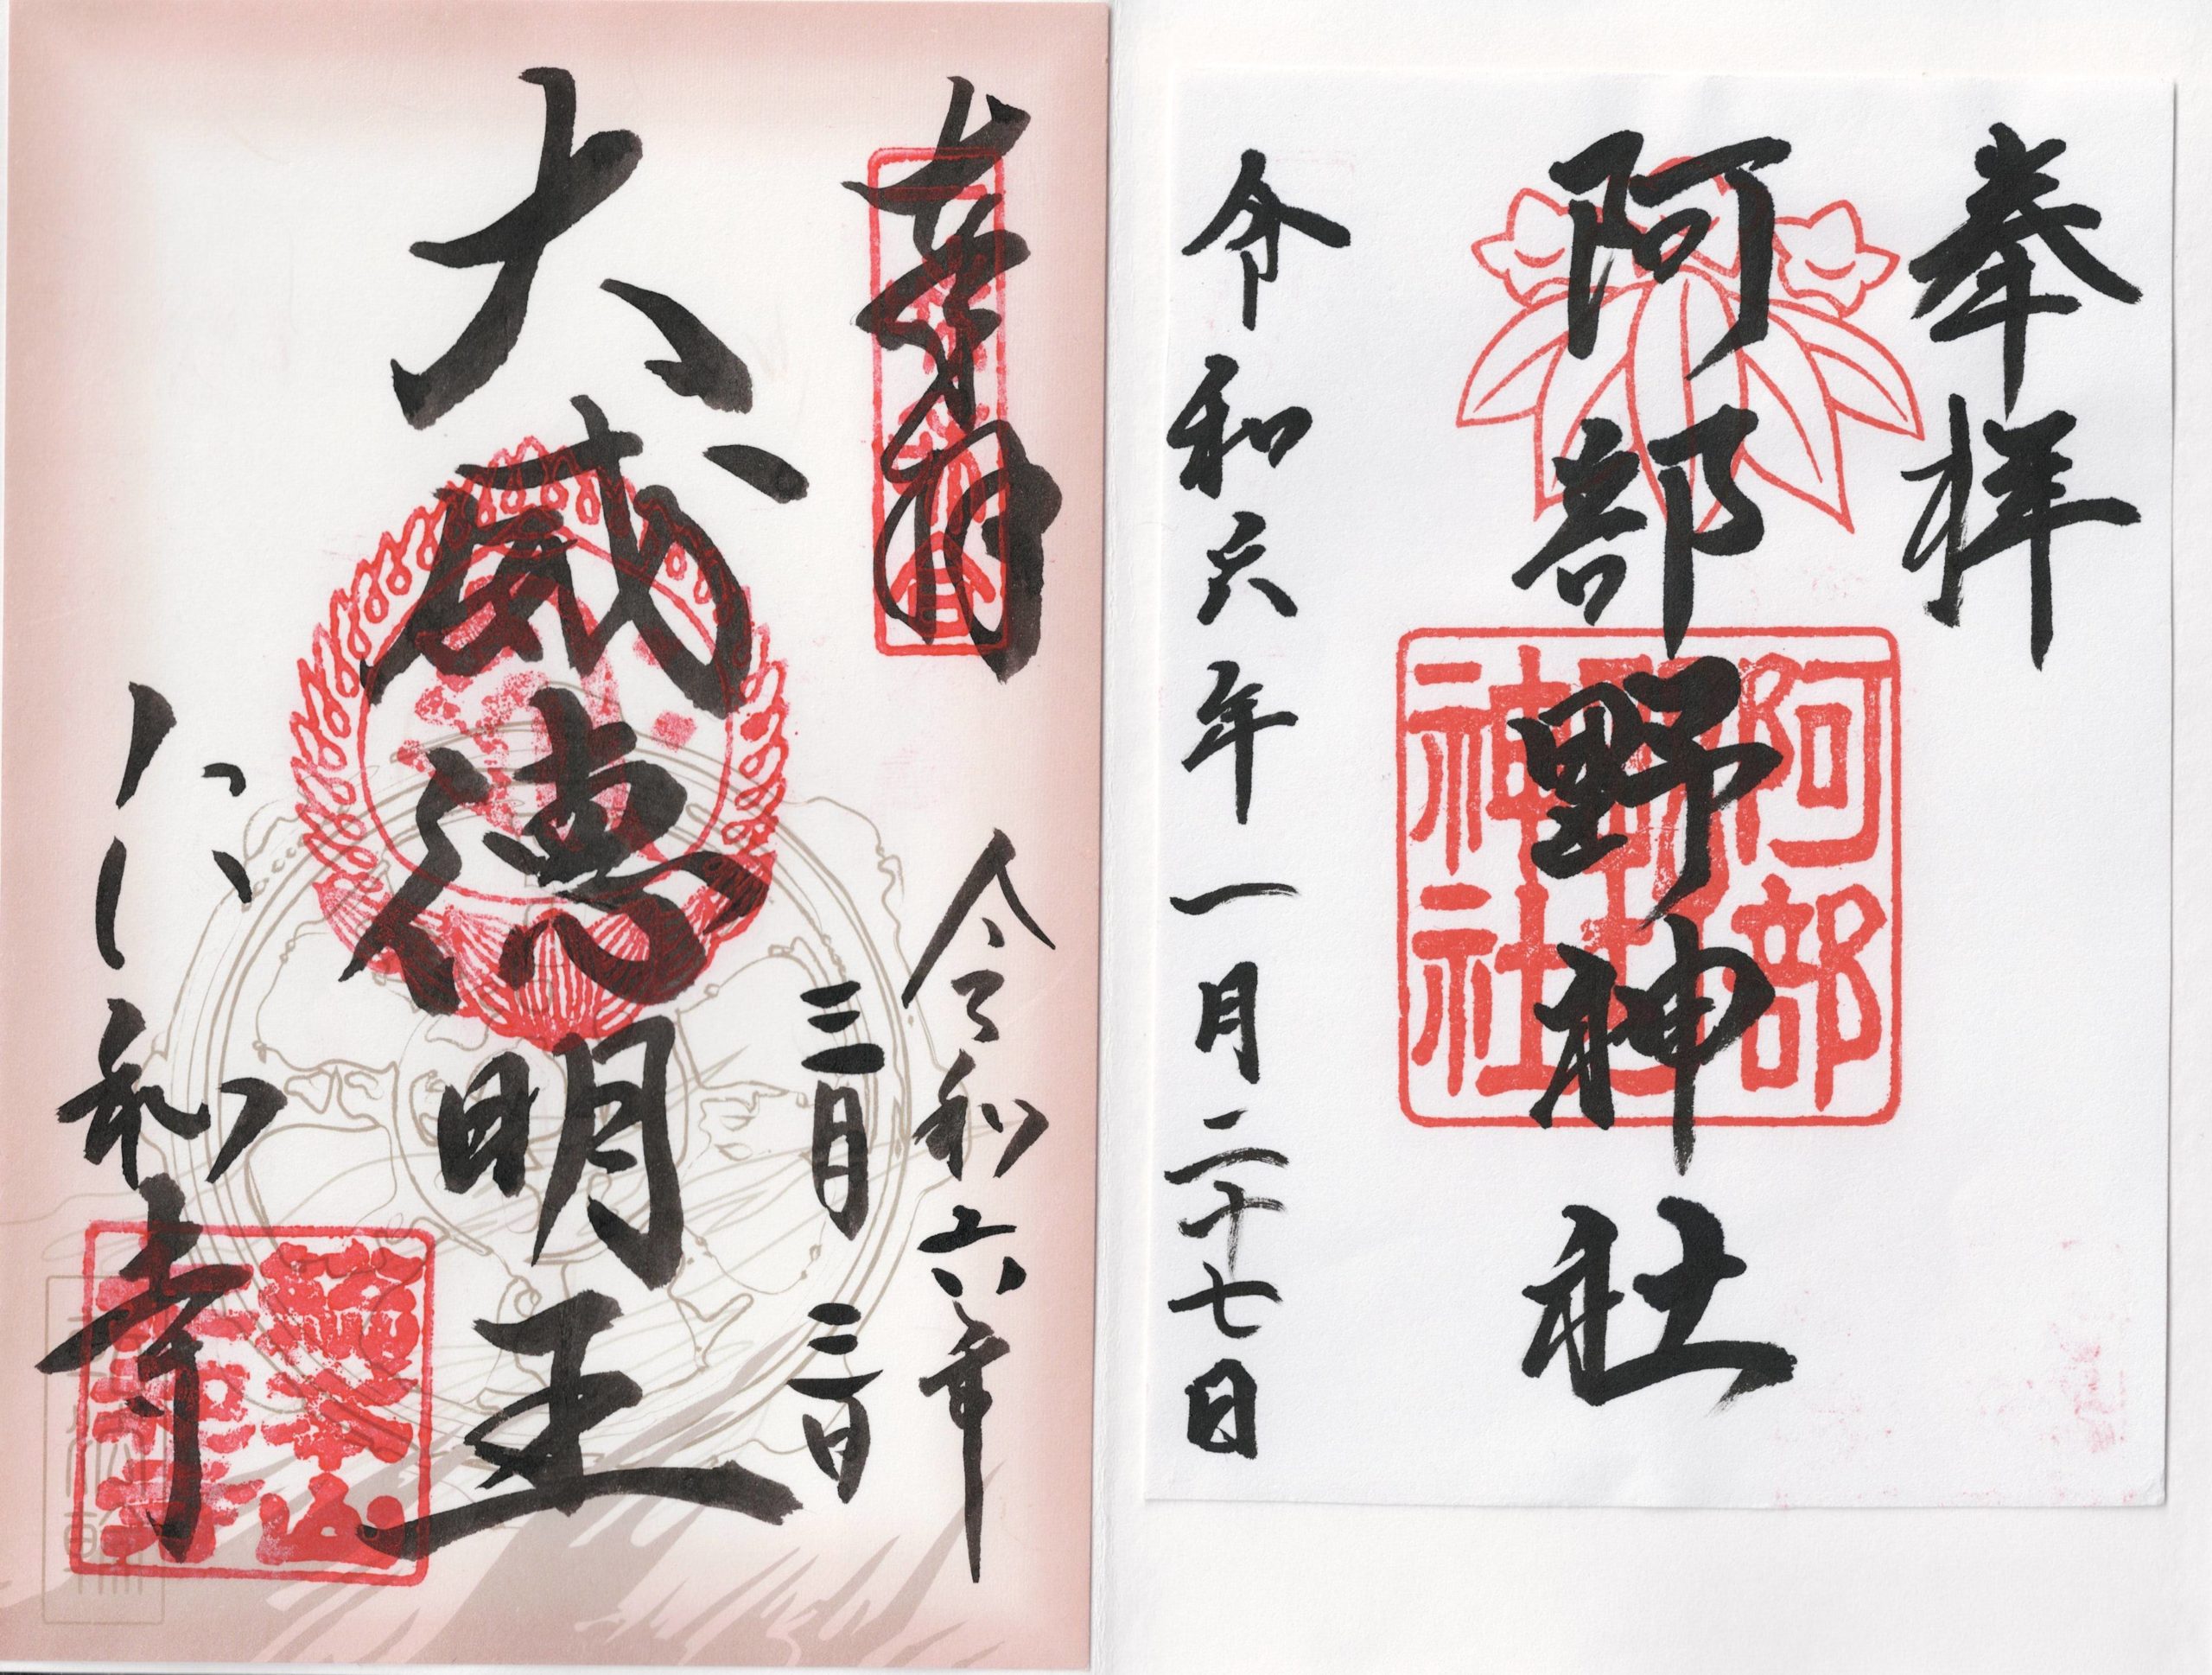 奉拝
阿部野神社
阿部野神社
令和六年一月二十七日
奉拝
令和六年
三月三日
大威徳明王